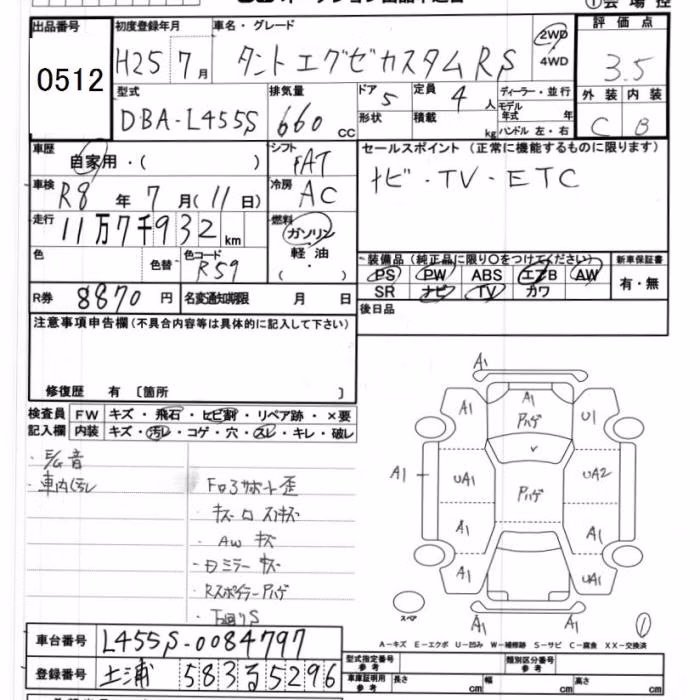 出品番号
0512
初度登録年月
H25 7月
車名・グレード
タントエグゼカスタムRS
2WD
4WD
評価点
3.5
外装 内装
C B
型式
DBA-L455S
排気量
660 cc
ドア 5
形状
定員 4 人
積載 kg
ディーラー・並行
モデル年式 年
ハンドル 左・右
車歴
自家用・( )
シフト
FAT
車検
R8 年 7 月 (11日)
冷房
AC
走行
11万7千932 km
燃料
ガソリン
軽油
( )
色
色替
色コード
R59
R券 8870 円
名変通知期限 月 日
セールスポイント(正常に機能するものに限ります)
ナビ・TV・ETC
装備品(純正品に限り○をつけてください)
PS PW ABS エアB AW
SR ナビ TV カワ
新車保証書
有・無
後日品
注意事項申告欄(不具合内容等は具体的に記入して下さい)
修復歴 有 〔箇所 〕
検査員記入欄
FW キズ・飛石・ヒビ割・リペア跡・×要
内装 キズ・汚レ・コゲ・穴・スレ・キレ・破レ
・E/G音
・車内汚レ
・Fロアサポート歪
・AWキズ
・ミラーキズ
・Rスポイラーアハゲ
・下回りS
A1
A1
A1
アハゲ
U1
A1
UA1
UA2
アハゲ
A1
A1
A1
UA1
A1
A1
スペア
1
A-キズ E-エクボ U-凹み W-補修跡 S-サビ C-腐食 XX-交換済
車台番号 L455S-0084797
登録番号 土浦 583 る 5296
型式指定番号 参考
類別区分番号 参考
車庫証明用 参考
長さ cm
幅 cm
高さ cm